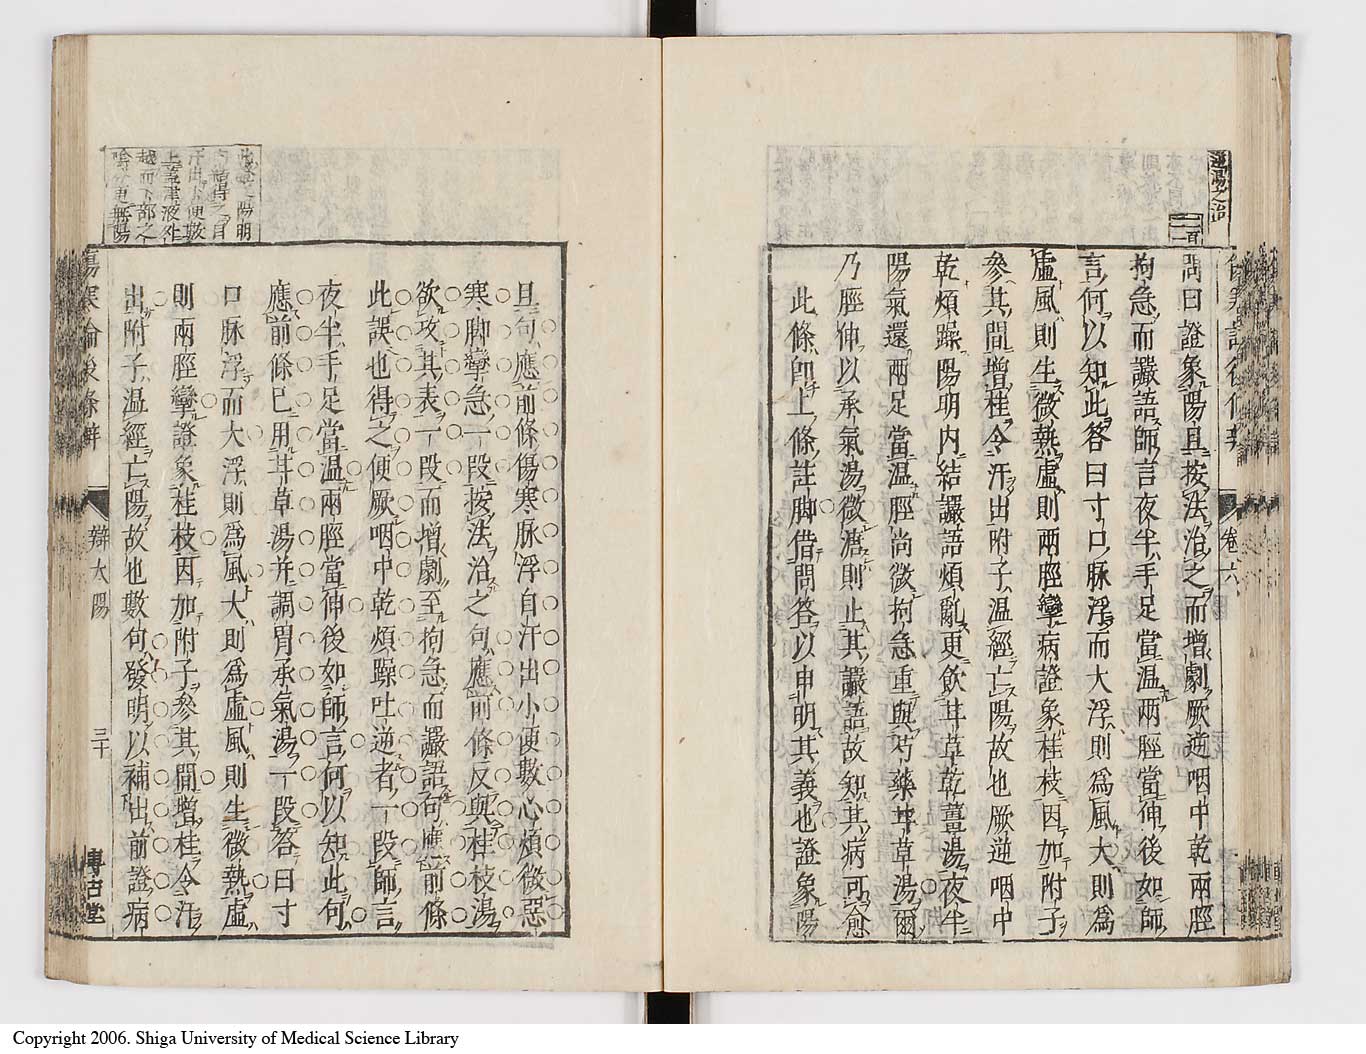 逆湯之治
一百一
問曰證象陽且按法治之而增劇厥逆咽中乾兩脛
拘急而讝語師言夜半手足當温兩脛當伸後如師
言何以知此答曰寸口脉浮而大浮則為風大則為
虛風則生微熱虛則兩脛攣病證象桂枝因加附子
參其間增桂令汗出附子温經亡陽故也厥逆咽中
乾煩躁陽明内結讝語煩亂更飲甘草乾薑湯夜半
陽氣還兩足當温脛尚微拘急重與芍藥甘草湯爾
乃脛伸以承氣湯微溏則止其讝語故知其病可愈
此條卽上條註脚借問答以申明其義也證象陽
卷六
陽明
汗出小便數
上蓋津液外
越而下部之
陰分更無陽
且句應前條傷寒脉浮自汗出小便數心煩微惡
寒脚攣急一段按法治之句應前條反與桂枝湯
欲攻其表一段而增劇至拘急而讝語句應前條
此誤也得之便厥咽中乾煩躁吐逆者一段師言
夜半手足當温兩脛當伸後如師言何以知此句
應前條已用甘草湯并調胃承氣湯一段答曰寸
口脉浮而大浮則爲風大則爲虛風則生微熱虛
則兩脛攣證象桂枝因加附子參其間增桂令汗
出附子温經亡陽故也數句發明以補出前證病
傷寒論後條辨
辯太陽
三十
博古堂
Copyright 2006. Shiga University of Medical Science Library